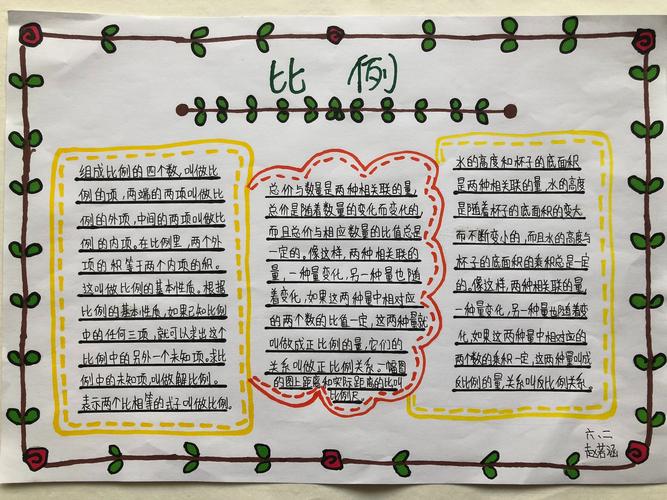 比例
组成比例的四个数,叫做比
例的项,两端的两项叫做比
例的外项,中间的两项叫做比
例的内项。在比例里,两个外
项的积等于两个内项的积。
这叫做比例的基本性质。根据
比例的基本性质,如果已知比例
中的任何三项,就可以求出这个
比例中的另外一个未知项。求比
例中的未知项,叫做解比例。
表示两个比相等的式子叫做比例。
总价与数量是两种相关联的量,
总价是随着数量的变化而变化的,
而且总价与相应数量的比值总是
一定的。像这样,两种相关联的
量,一种量变化,另一种量也随
着变化,如果这两种量中相对应
的两个数的比值一定,这两种量就
叫做成正比例的量,它们的
关系叫做正比例关系。一幅图
的图上距离和实际距离的比叫
比例尺。
水的高度和杯子的底面积
是两种相关联的量,水的高度
是随着杯子的底面积的变大
而不断变小的,而且水的高度与
杯子的底面积的乘积总是一定
的。像这样,两种相关联的量,
一种量变化,另一种量也随着变
化,如果这两种量中相对应的
两个数的乘积一定,这两种量叫成
反比例的量,关系叫反比例关系。
六、二
赵若涵